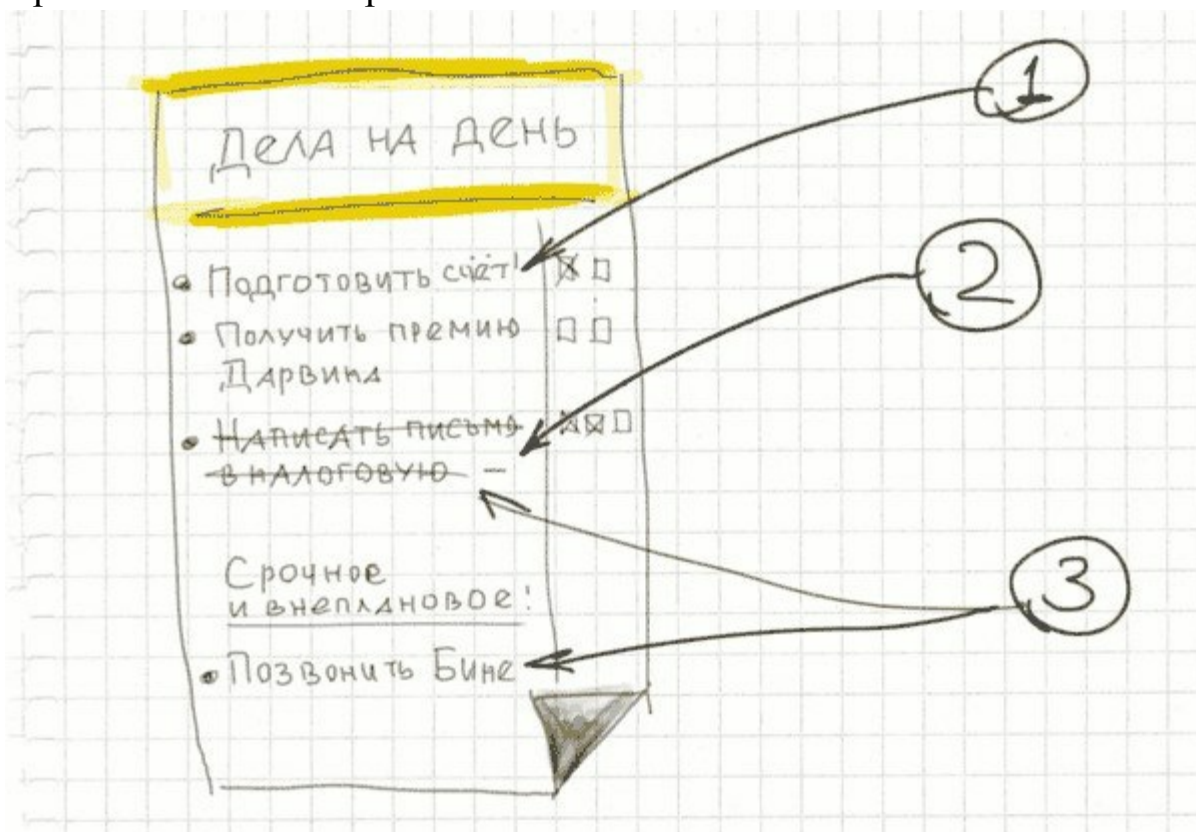 Дела на день
1
• Подготовить счёт!
2
• Получить премию
Дарвина
• Написать письмо
в налоговую –
Срочное
и внеплановое!
3
• Позвонить Бине